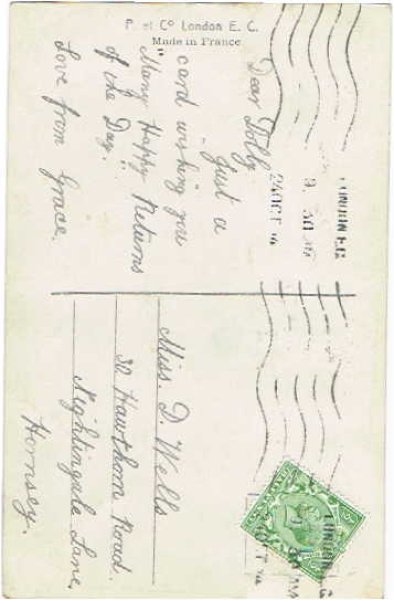 P. et Co London E. C.
Made in France
Dear Dolly
Just a
card wishing you
"Many Happy Returns
of the Day."
Love from Grace.
LONDON E.C
24 OCT
Miss. D. Wells
30 Hawthorn Road.
Nightingale Lane,
Hornsey.